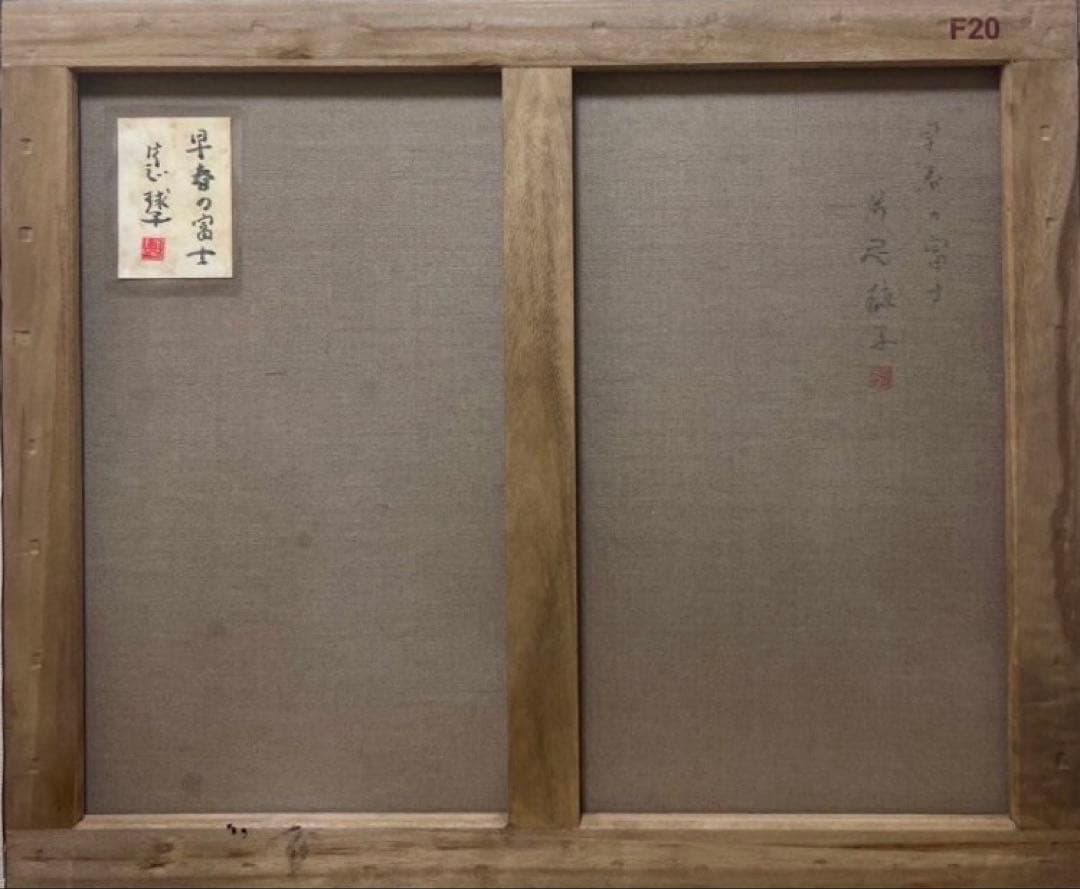 F20
早春の富士
球子
早春の富士
片岡球子